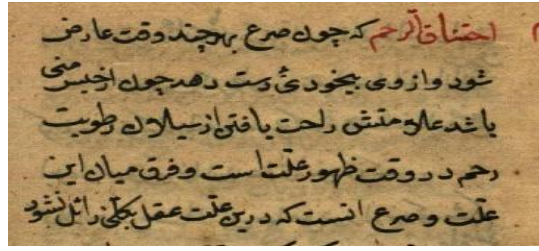 اختناق الرحم که چون صرع بهر چند وقت عارض
شود و از وی بیخودئ دست دهد چون از حبس منی
باشد علامتش راحت یافتن از سیلان رطوبت
رحم در وقت ظهور علت است و فرق میان این
علت و صرع آنست که درین علت عقل بکلی زائل نشود